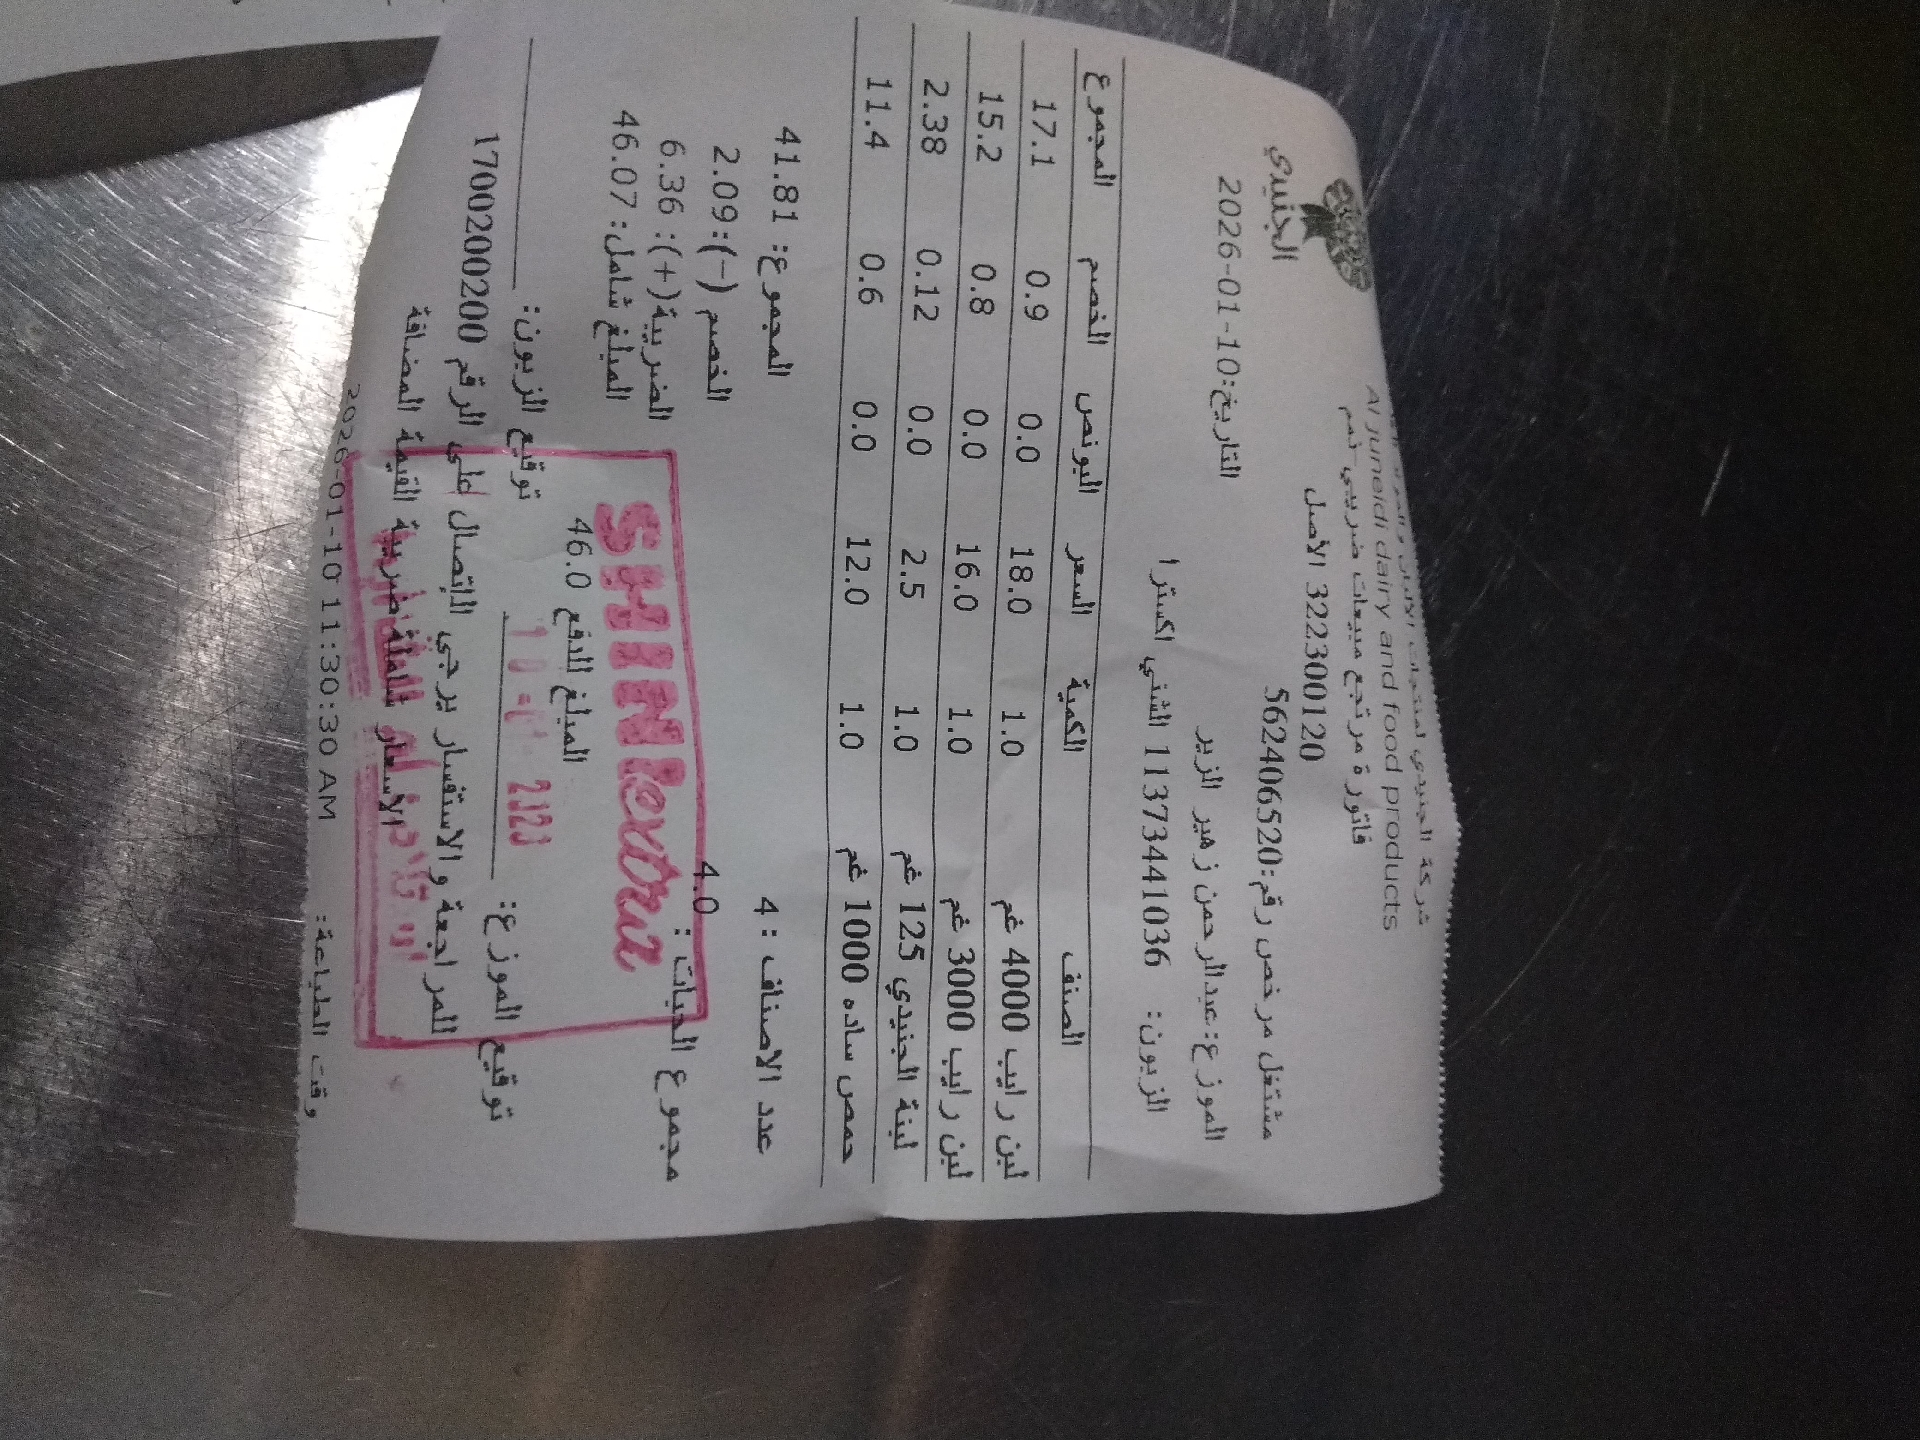 شركة الجنيدي لمنتجات الالبان و
Al juneidi dairy and food products
فاتورة مرتجع مبيعات ضريبي ذمم
الجنيدي
322300120 الاصل
مشتغل مرخص رقم:562406520
التاريخ:2026-01-10
الموزع:عبدالرحمن زهير الزير
الزبون: 11373441036 الشني اكسترا
الصنف الكمية السعر البونص الخصم المجموع
لبن رايب 4000 غم 1.0 18.0 0.0 0.9 17.1
لبن رايب 3000 غم 1.0 16.0 0.0 0.8 15.2
لبنة الجنيدي 125 غم 1.0 2.5 0.0 0.12 2.38
حمص ساده 1000 غم 1.0 12.0 0.0 0.6 11.4
عدد الاصناف : 4 المجموع: 41.81
الخصم (-):2.09
مجموع الحبات : 4.0 الضريبة(+): 6.36
المبلغ شامل: 46.07
SHINI extra
المبلغ المدفع 46.0
توقيع الموزع: توقيع الزبون:
للمراجعة والاستفسار يرجي الاتصال على الرقم 1700200200
الاسعار شاملة ضريبة القيمة المضافة
وقت الطباعة: 2026-01-10 11:30:30 AM